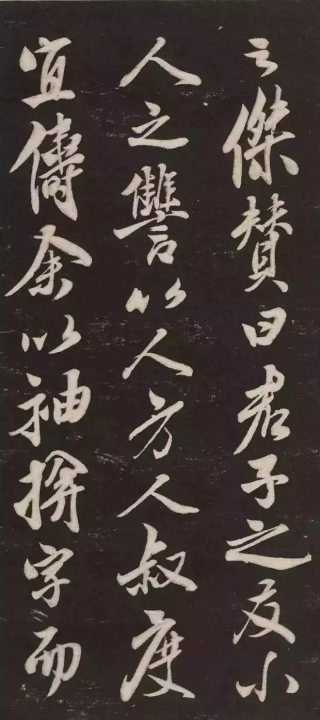 之傑贊曰君子之友小
人之讐以人方人叔度
宜儔余以袖掩字而